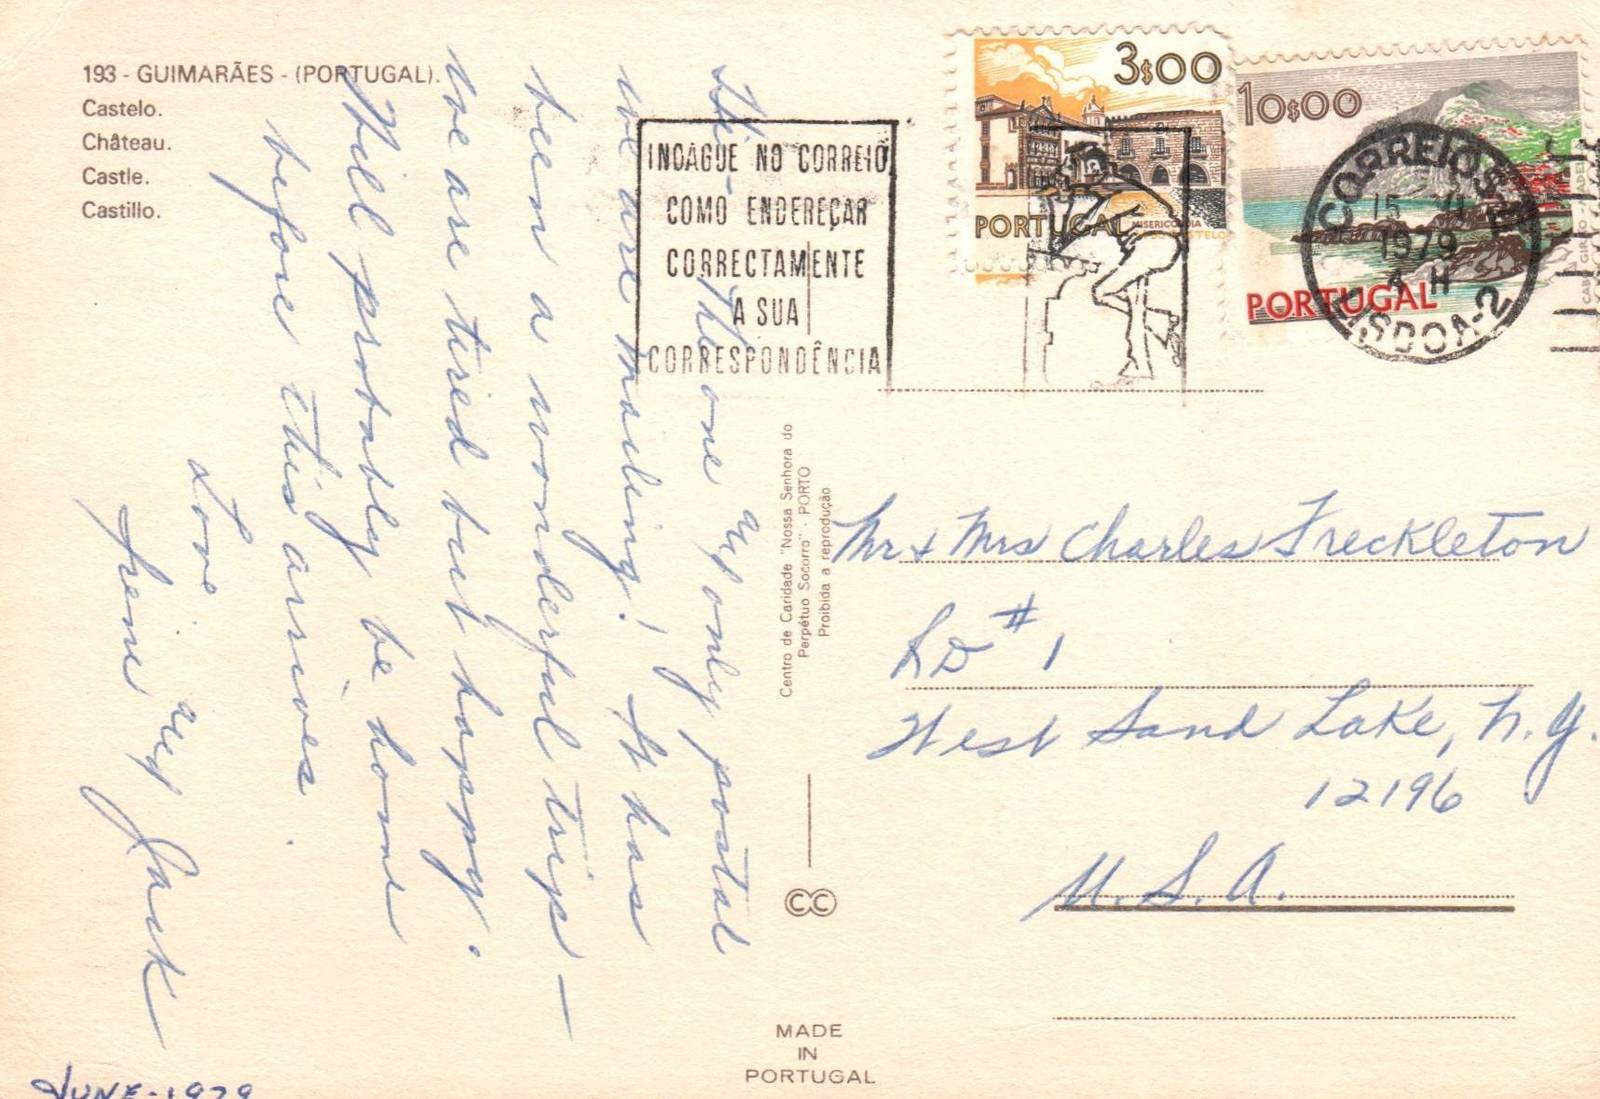 193 - GUIMARÃES - (PORTUGAL).
Castelo.
Château.
Castle.
Castillo.
Hi - The one & only postal
we are mailing! It has
been a wonderful trip -
we are tired but happy.
Will probably be home
before this arrives.
Love
Irene & Jack
JUNE-1979
INDAGUE NO CORREIO
COMO ENDEREÇAR
CORRECTAMENTE
A SUA
CORRESPONDÊNCIA
3$00
PORTUGAL
MISERICORDIA
10$00
PORTUGAL
CORREIOS
15 VI
1979
4 H
LISBOA-2
Centro de Caridade "Nossa Senhora do
Perpétuo Socorro" - PORTO
Proibida a reprodução
Mr & Mrs Charles Freckleton
RD #1
West Sand Lake, N.Y.
12196
U.S.A.
CC
MADE
IN
PORTUGAL